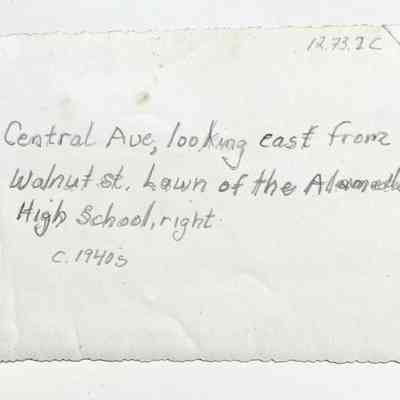 12.73.2 C
Central Ave, looking east from
Walnut st. Lawn of the Alameda
High School, right.
C. 1940s